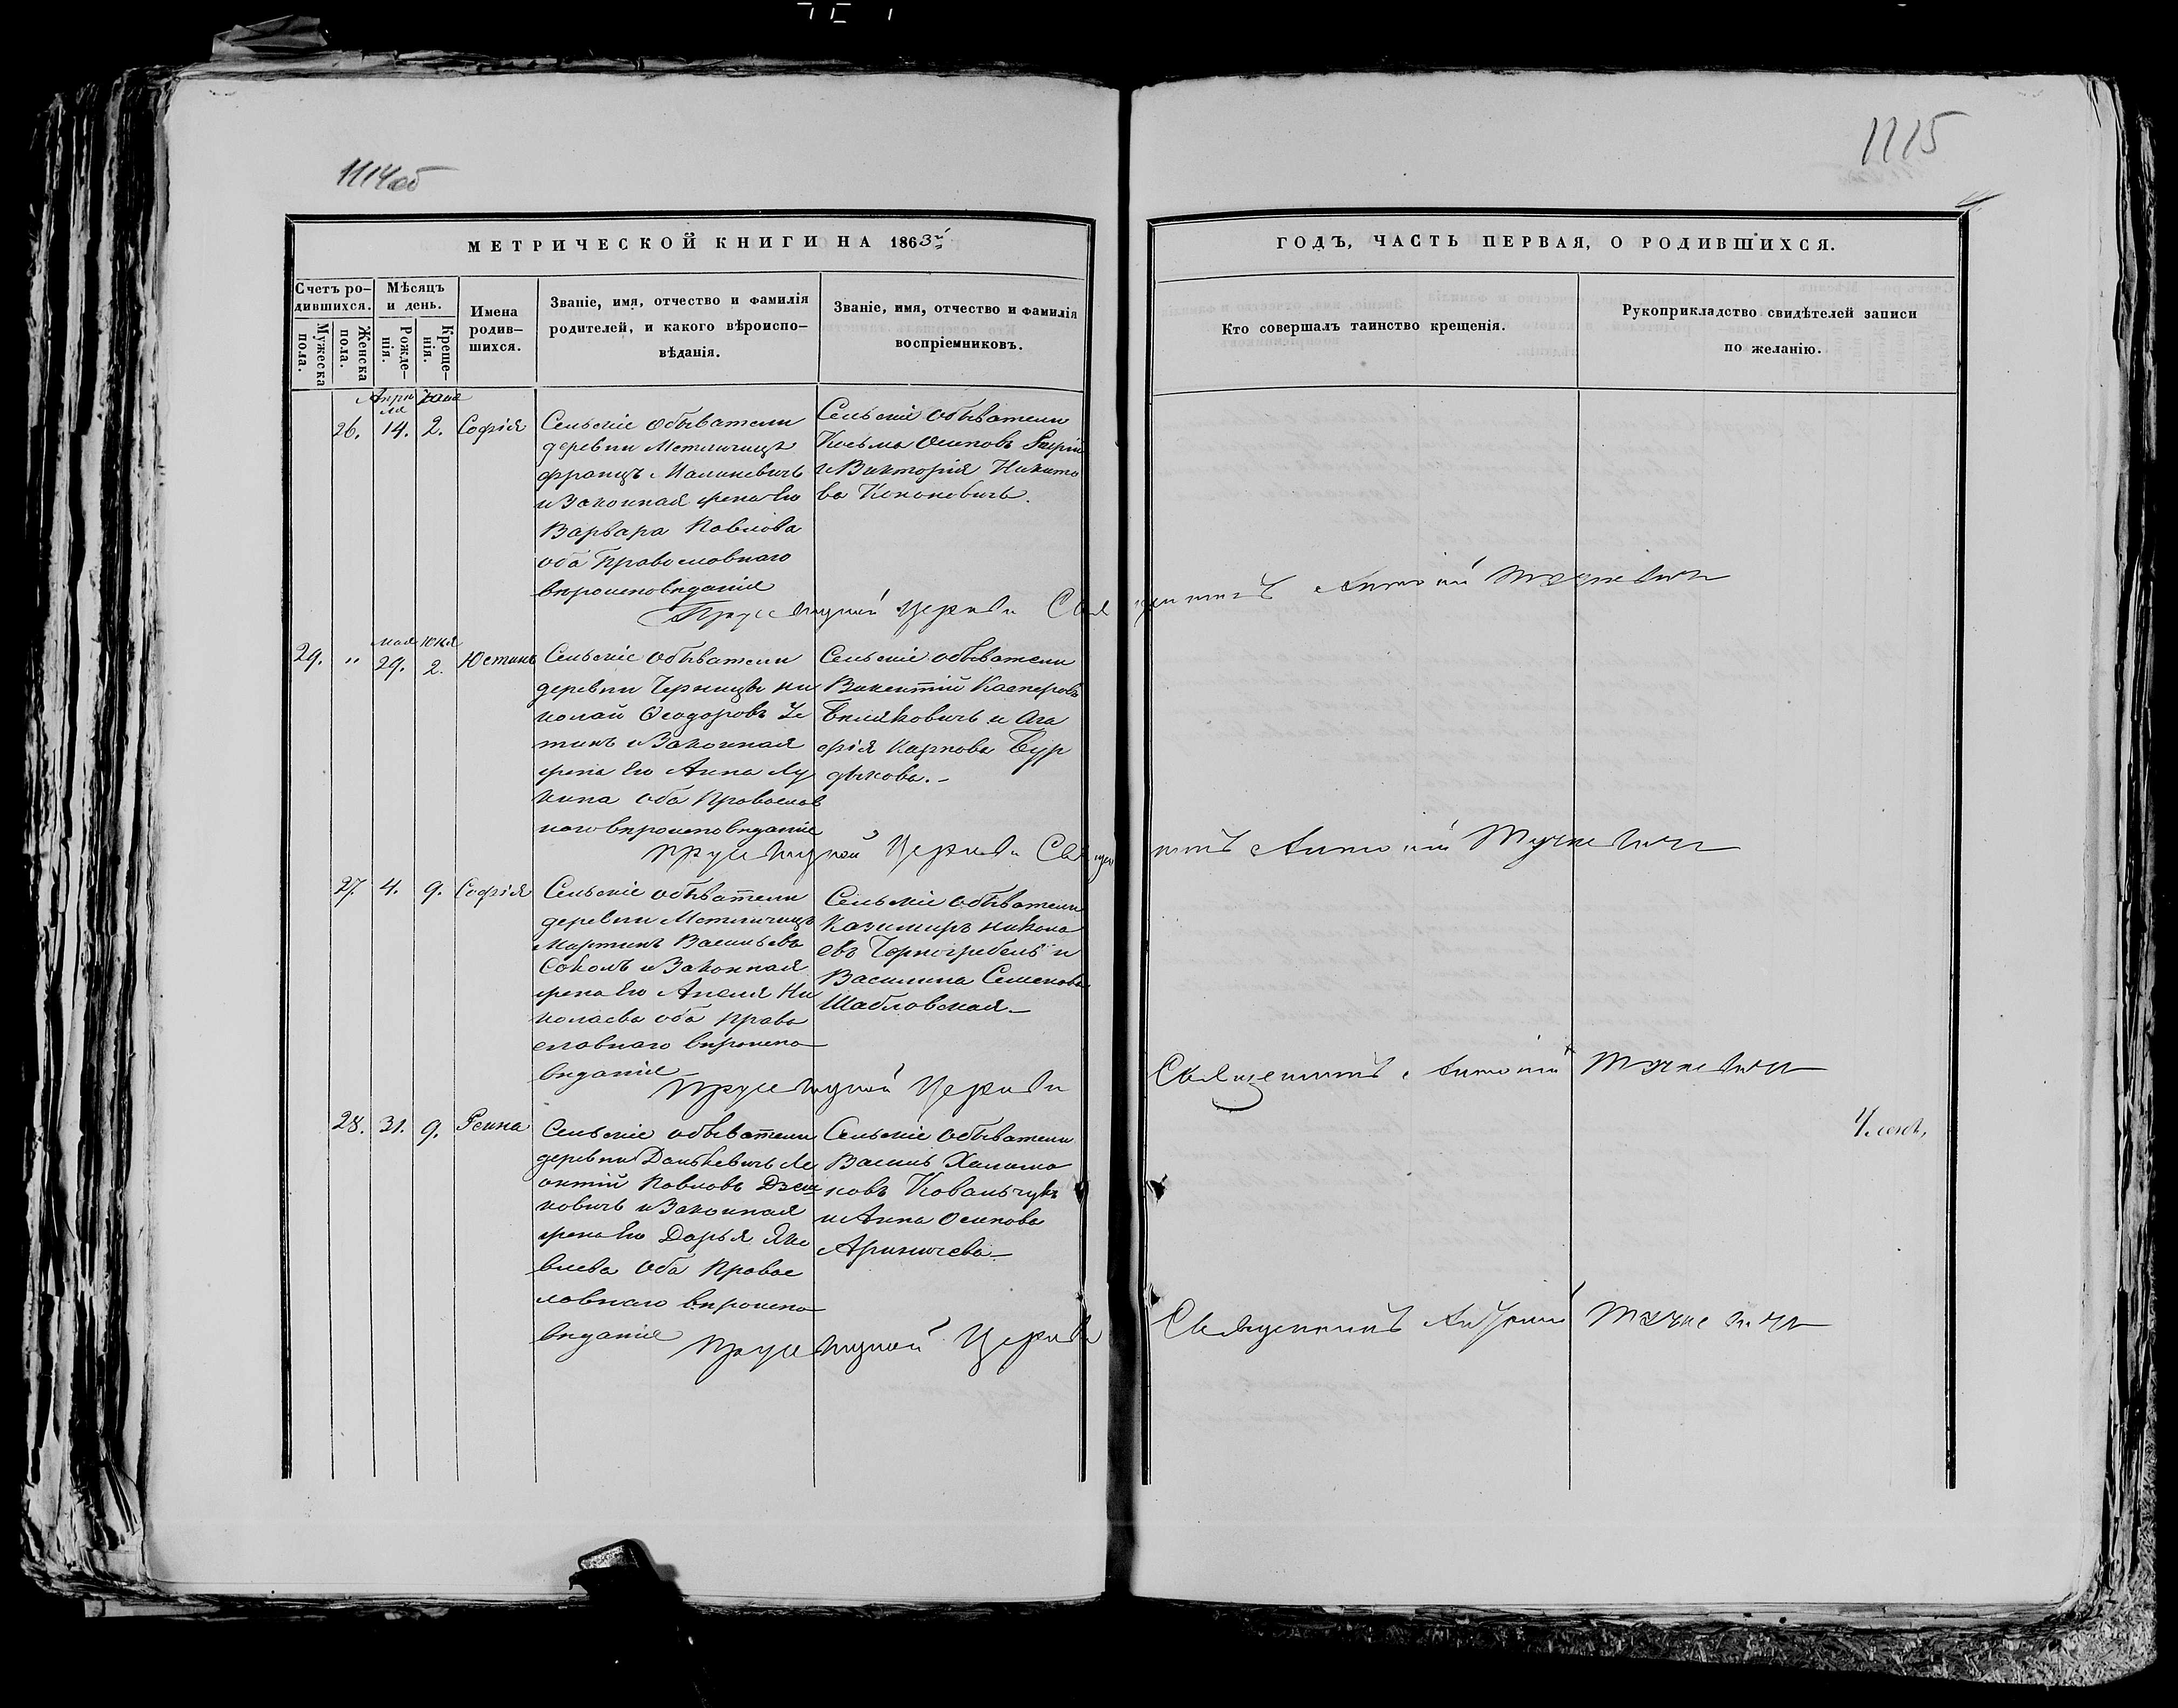 1114об
1115
МЕТРИЧЕСКОЙ КНИГИ НА 1863й
ГОДЪ, ЧАСТЬ ПЕРВАЯ, О РОДИВШИХСЯ.
Счетъ ро-
дившихся.
Мужеска
пола.
Женска
пола.
Мѣсяцъ
и день.
Рожде-
нія.
Креще-
нія.
Имена
родив-
шихся.
Званіе, имя, отчество и фамилія
родителей, и какого вѣроиспо-
вѣданія.
Званіе, имя, отчество и фамилія
воспріемниковъ.
Кто совершалъ таинство крещенія.
Рукоприкладство свидѣтелей записи
по желанію.
Апрѣ
ля
Юня
26. 14. 2. Софія
Сельскіе обыватели
деревни Метличицъ
францъ Малиневичъ
и Законная жена Его
Варвара Павлова
оба Православнаго
вѣроисповѣданія
Сельскіе обыватели
Косьма Осиповъ
и Викторія Никито
ва Кононовичъ.
Церкви Священникъ Антоній
Мая Юня
29. " 29. 2. Юстинъ
Сельскіе обыватели
деревни Черницы Ни
колай Ѳеодоровъ
и Законная
жена Его Анна Лу
кина оба Православ
наго вѣроисповѣданія
Сельскіе обыватели
Викентій Касперовъ
Биляковичъ и Ага
фія Карпова Бур
дыкова.-
Церкви Священникъ Антоній
27. 4. 9. Софія
Сельскіе обыватели
деревни Метличицъ
Мартинъ Васильевъ
Соколъ и Законная
жена Его Анеля Ни
колаева оба Право
славнаго вѣроиспо-
вѣданія
Сельскіе обыватели
Казимиръ Никола
евъ Черногребель и
Василина Семенова
Шабловская-
Церкви
Священникъ Антоній
28. 31. 9.
Сельскіе обыватели
деревни Данькевичъ Ле
онтій Павловъ
и Законная
жена Его Дарья Яко
влева Оба Правос
лавнаго вѣроиспо-
вѣданія
Сельскіе обыватели
Василь
Ковальчукъ
и Анна Осипова
Ариничева-
Церкви
Священникъ